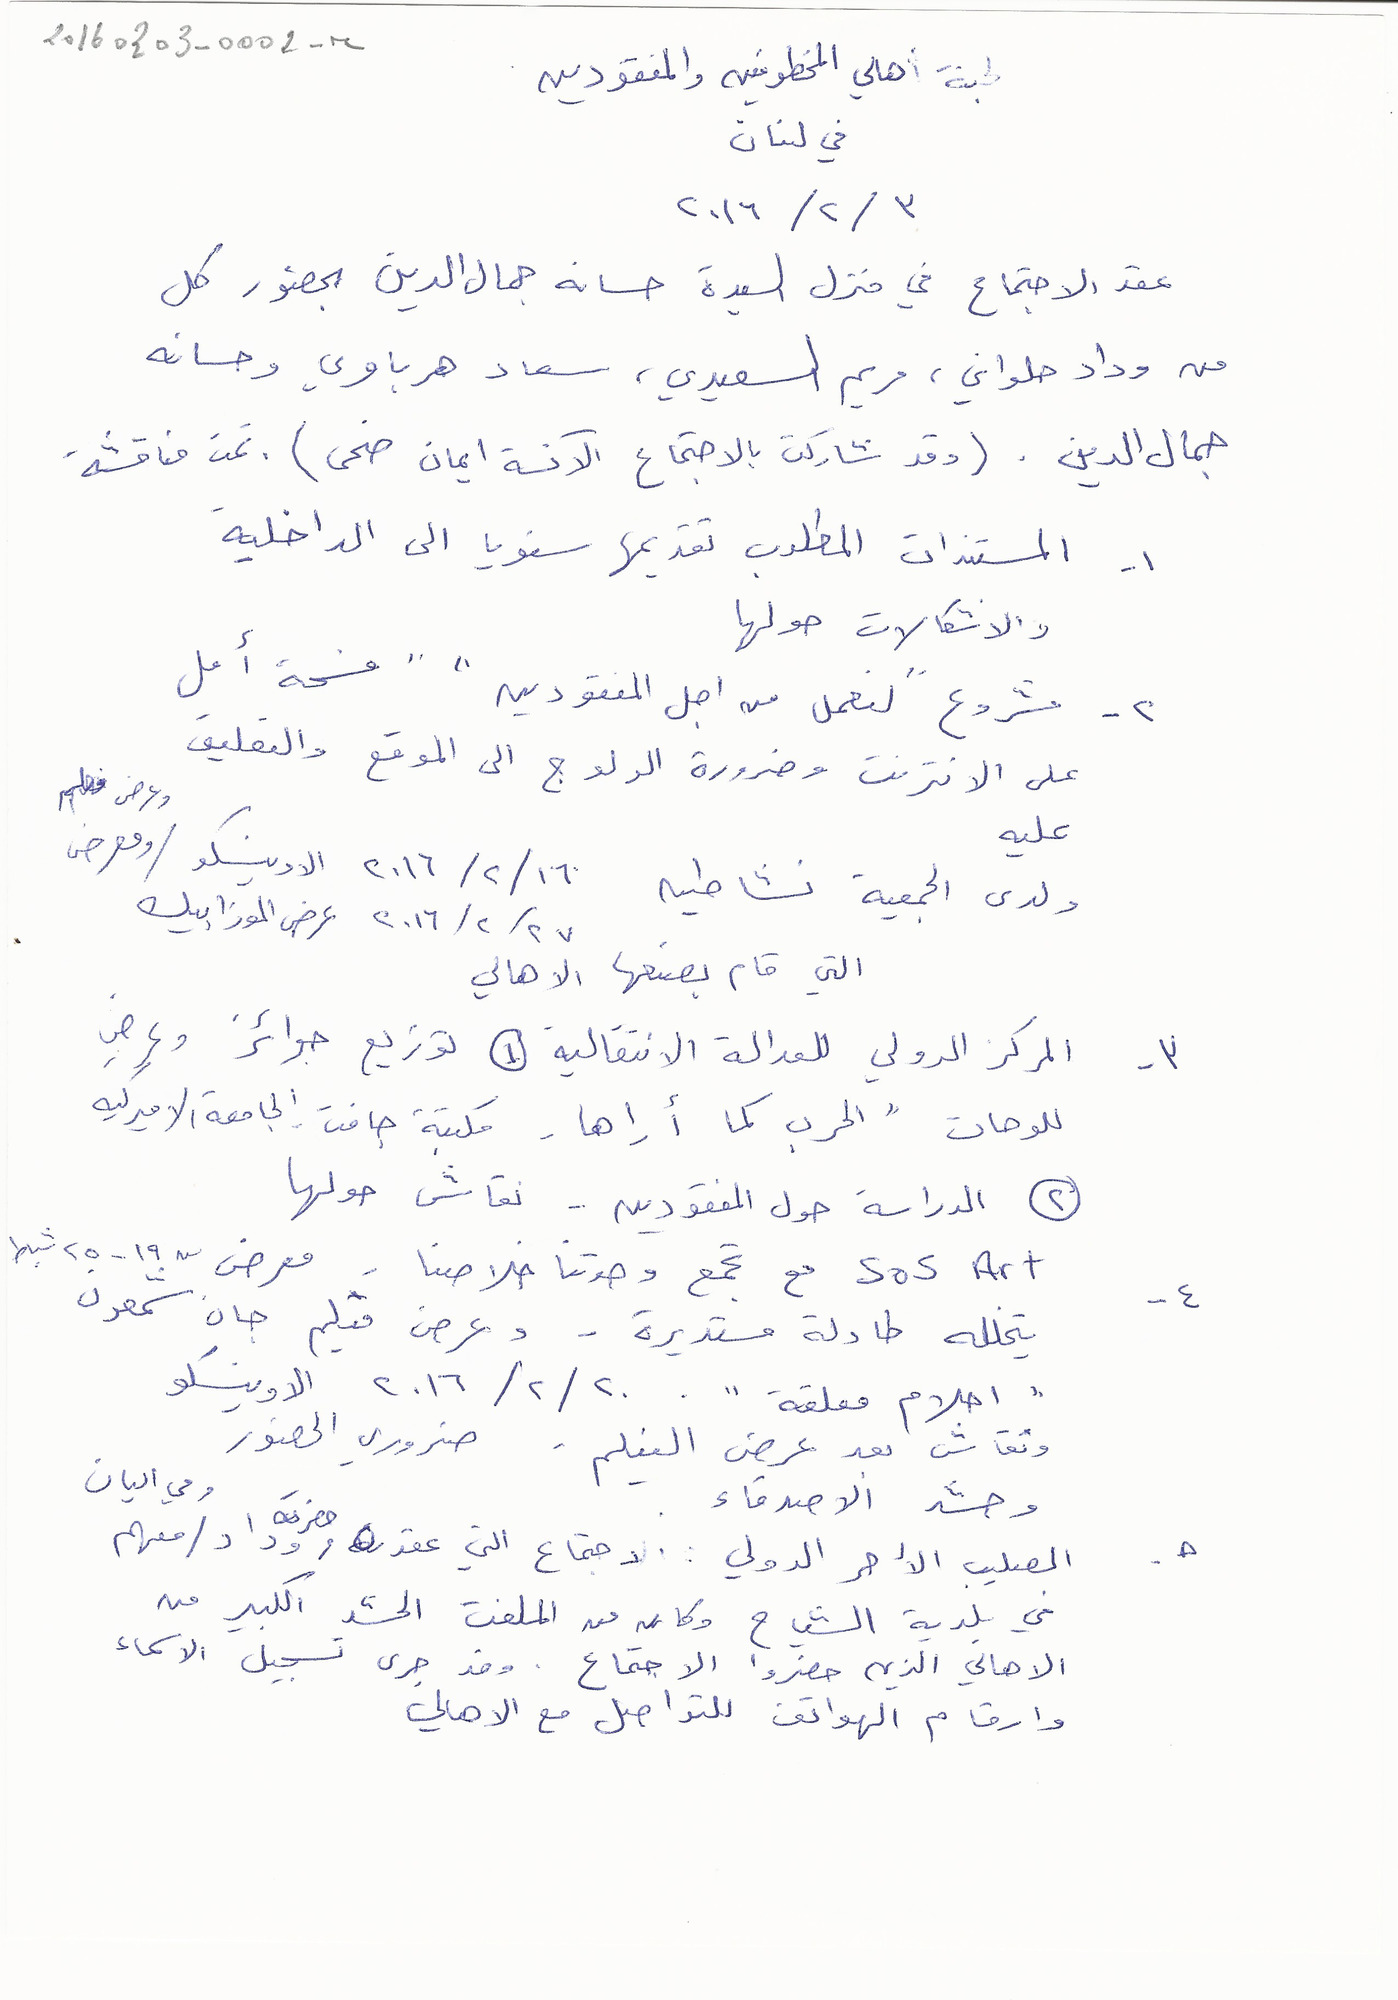 20160203-0002-m
لجنة أهالي المخطوفين والمفقودين
في لبنان
٣ / ٢ / ٢٠١٦
عقد الاجتماع في منزل السيدة حسانه جمال الدين بحضور كل
من وداد حلواني، مريم السعيدي، سعاد هرباوي وحسانه
جمال الدين. (وقد شاركت بالاجتماع الآنسة ايمان ضحى). تمت مناقشة
١- المستندات المطلوب تقديمها سنويا الى الداخلية
والاشكالات حولها
٢- مشروع "لنعمل من اجل المفقودين" "فسحة أمل
على الانترنت وضرورة الولوج الى الموقع والتعليق
عليه
وعرض فيلم
ولدى الجمعية نشاطين ١٦/٢/٢٠١٦ الاونيسكو /ومعرض
٢٧/٢/٢٠١٦ عرض الموزاييك
التي قام بصنعها الأهالي
٣- المركز الدولي للعدالة الانتقالية ① توزيع جوائز وعرض
للوحات "الحرب كما أراها - مكتبة جافت - الجامعة الاميركيه
② الدراسة حول المفقودين - نقاش حولها
٤- SOS Art مع تجمع وحدتنا خلاصنا - معرض من ١٩-٢٥ شباط
يتخلله طاولة مستديرة - وعرض فيلم جان شمعون
"احلام معلقة". ٢٠/٢/٢٠١٦ الاونيسكو
ونقاش بعد عرض الفيلم - ضروري الحضور
وحشد الاصدقاء.
٥- الصليب الأحمر الدولي: الاجتماع التي عقد حضرته وداد/معهم ومي اليان
في بلدية الشياح وكان من الملفت الحشد الكبير من
الاهالي الذين حضروا الاجتماع. وقد جرى تسجيل الاسماء
وارقام الهواتف للتواصل مع الاهالي